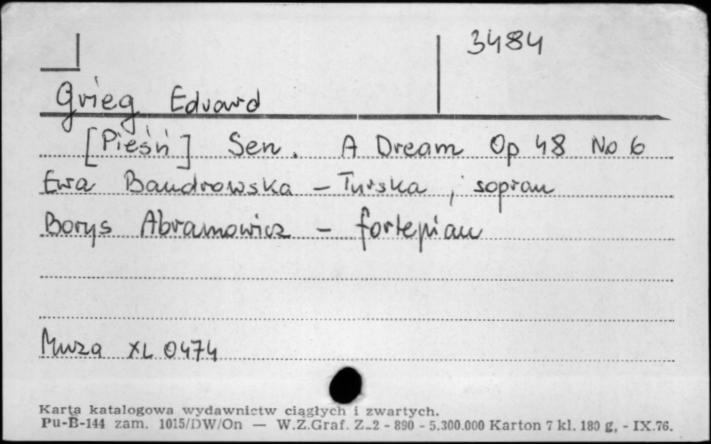 3484
Grieg Edvard
[Pieśń] Sen. A Dream Op 48 No 6
Ewa Bandrowska - Turska, sopran
Borys Abramowicz - fortepian
Muza XL 0474
Karta katalogowa wydawnictw ciągłych i zwartych.
Pu-B-144 zam. 1015/DW/On — W.Z.Graf. Z-2 - 890 - 5.300.000 Karton 7 kl. 180 g. - IX.76.